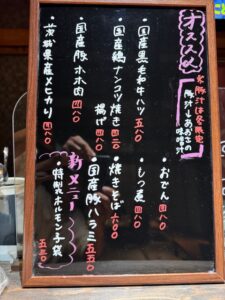 オススメ
※豚汁は冬限定
豚汁・あおさの味噌汁
・国産黒毛和牛ハツ 五八〇
・国産鶏ナンコツ焼き 四二〇
揚げ 四八〇
・国産豚ホホ肉 四八〇
・茨城県産メヒカリ 四八〇
・おでん 四八〇
・もつ煮 四八〇
・焼きそば 六〇〇
・国産豚ハラミ 五五〇
新メニュー
・特製ホルモン子袋 五五〇